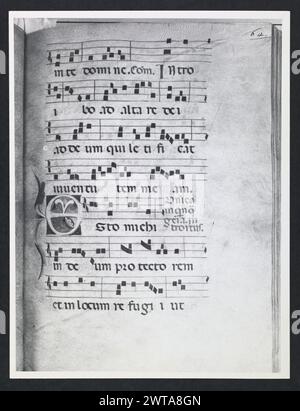 in te domi ne. Com. Intro
i bo ad alta re de i
ad de um qui le ti fi cat
iuventu tem me am.
Esto michi
in de um pro tecto rem
et in locum re fu gi i ut
alamy
Image ID: 2WTA8GN
www.alamy.com